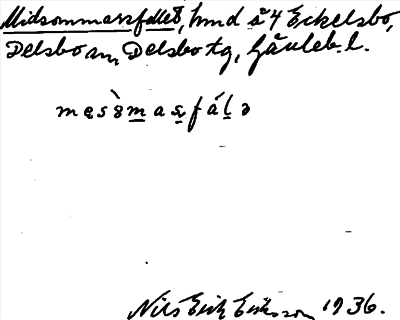 Midsommarsfallet, hmd å 4 Eckelsbo,
Delsbo sn, Delsbo tg, Gävleb. l.
Nils Erik Eriksson 1936.